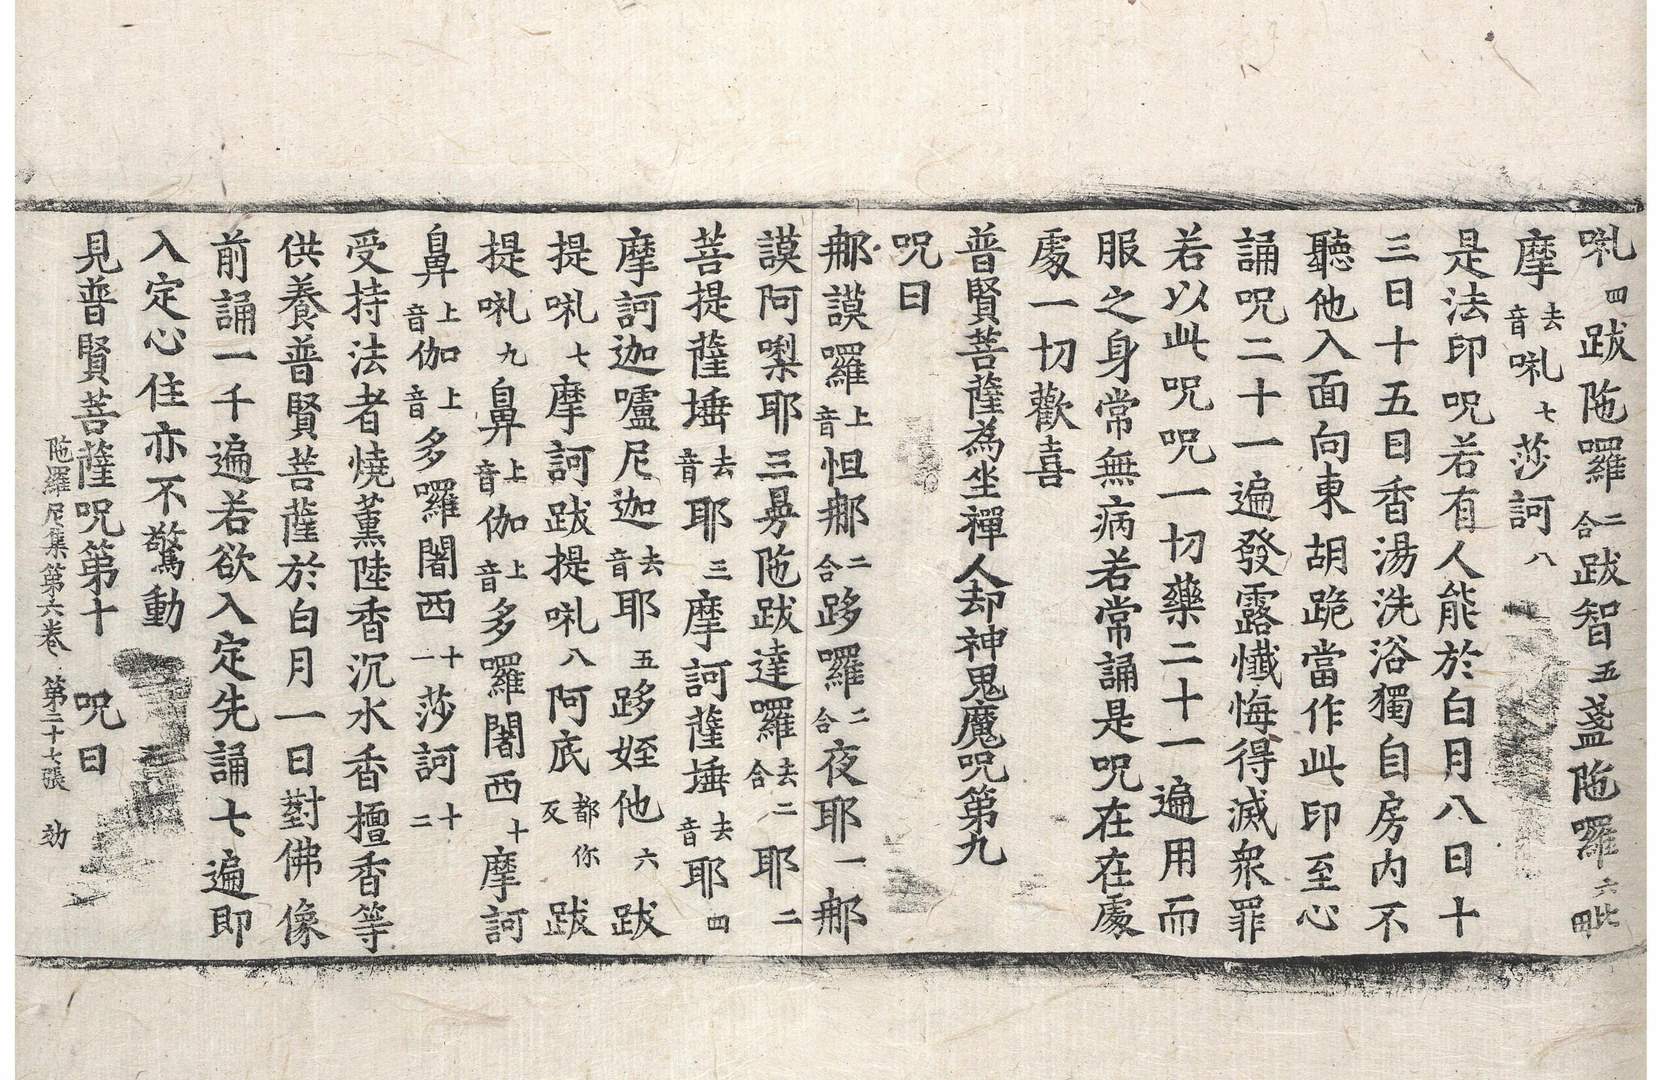 㘑四跋陁囉二合跋智五盞陁囉六毗㘑
摩去音㘑七莎訶八
是法印呪若有人能於白月八日十
三日十五日香湯洗浴獨自房内不
聽他入面向東胡跪當作此印至心
誦呪二十一遍發露懺悔得滅衆罪
若以此呪呪一切藥二十一遍用而
服之身常無病若常誦是呪在在處
處一切歡喜
普賢菩薩為坐禪人却神鬼魔呪第九
呪曰
那謨囉上音怛那二合跢囉二合夜耶一那
謨阿㗚耶三曼陁跋達囉去二合耶二
菩提薩埵去音耶三摩訶薩埵去音耶四
摩訶迦嚧尼迦去音耶五跢姪他六跋
提㘑七摩訶跋提㘑八阿底都你反跋
提㘑九鼻上音伽上音多囉闍西十摩訶
鼻上音伽上音多囉闍西十一莎訶十二
受持法者燒薫陸香沉水香檀香等
供養普賢菩薩於白月一日對佛像
前誦一千遍若欲入定先誦七遍即
入定心住亦不驚動
見普賢菩薩呪第十 呪曰
陁羅尼集第六卷 第二十七張 効